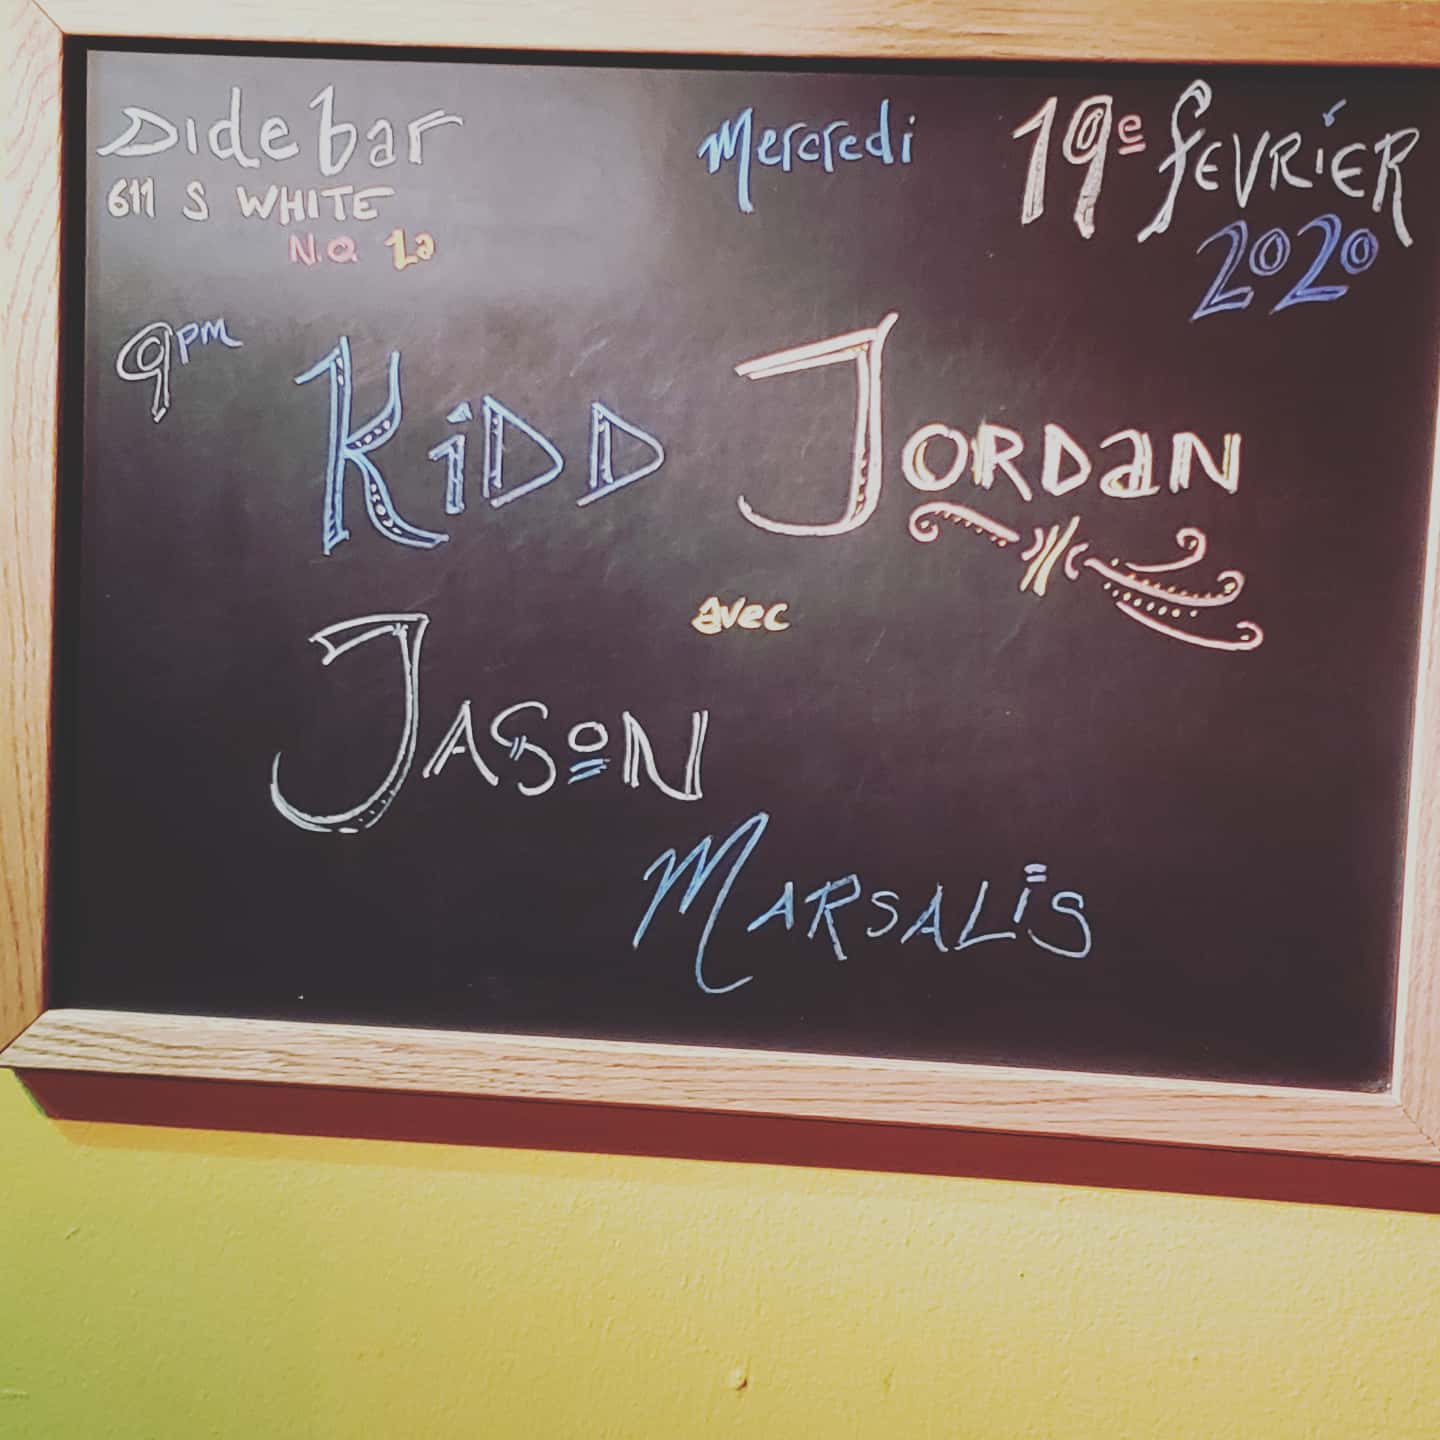 Sidebar
611 S WHITE
N.O. La
Mercredi 19e FEVRiER
2020
9PM
KiDD JORDAN
avec
JASON
MARSALiS